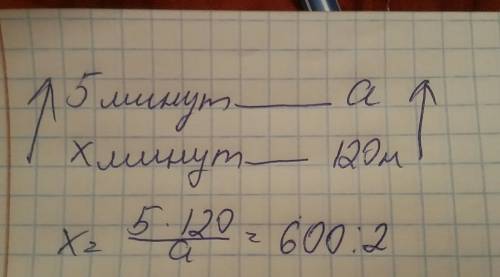 5 минут — а
х минут — 120м
х = 5 · 120 / а = 600 : 2